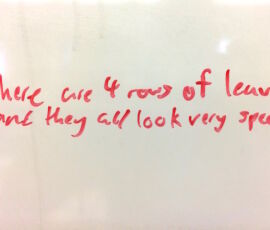 here are 4 rows of leav
and they all look very spe